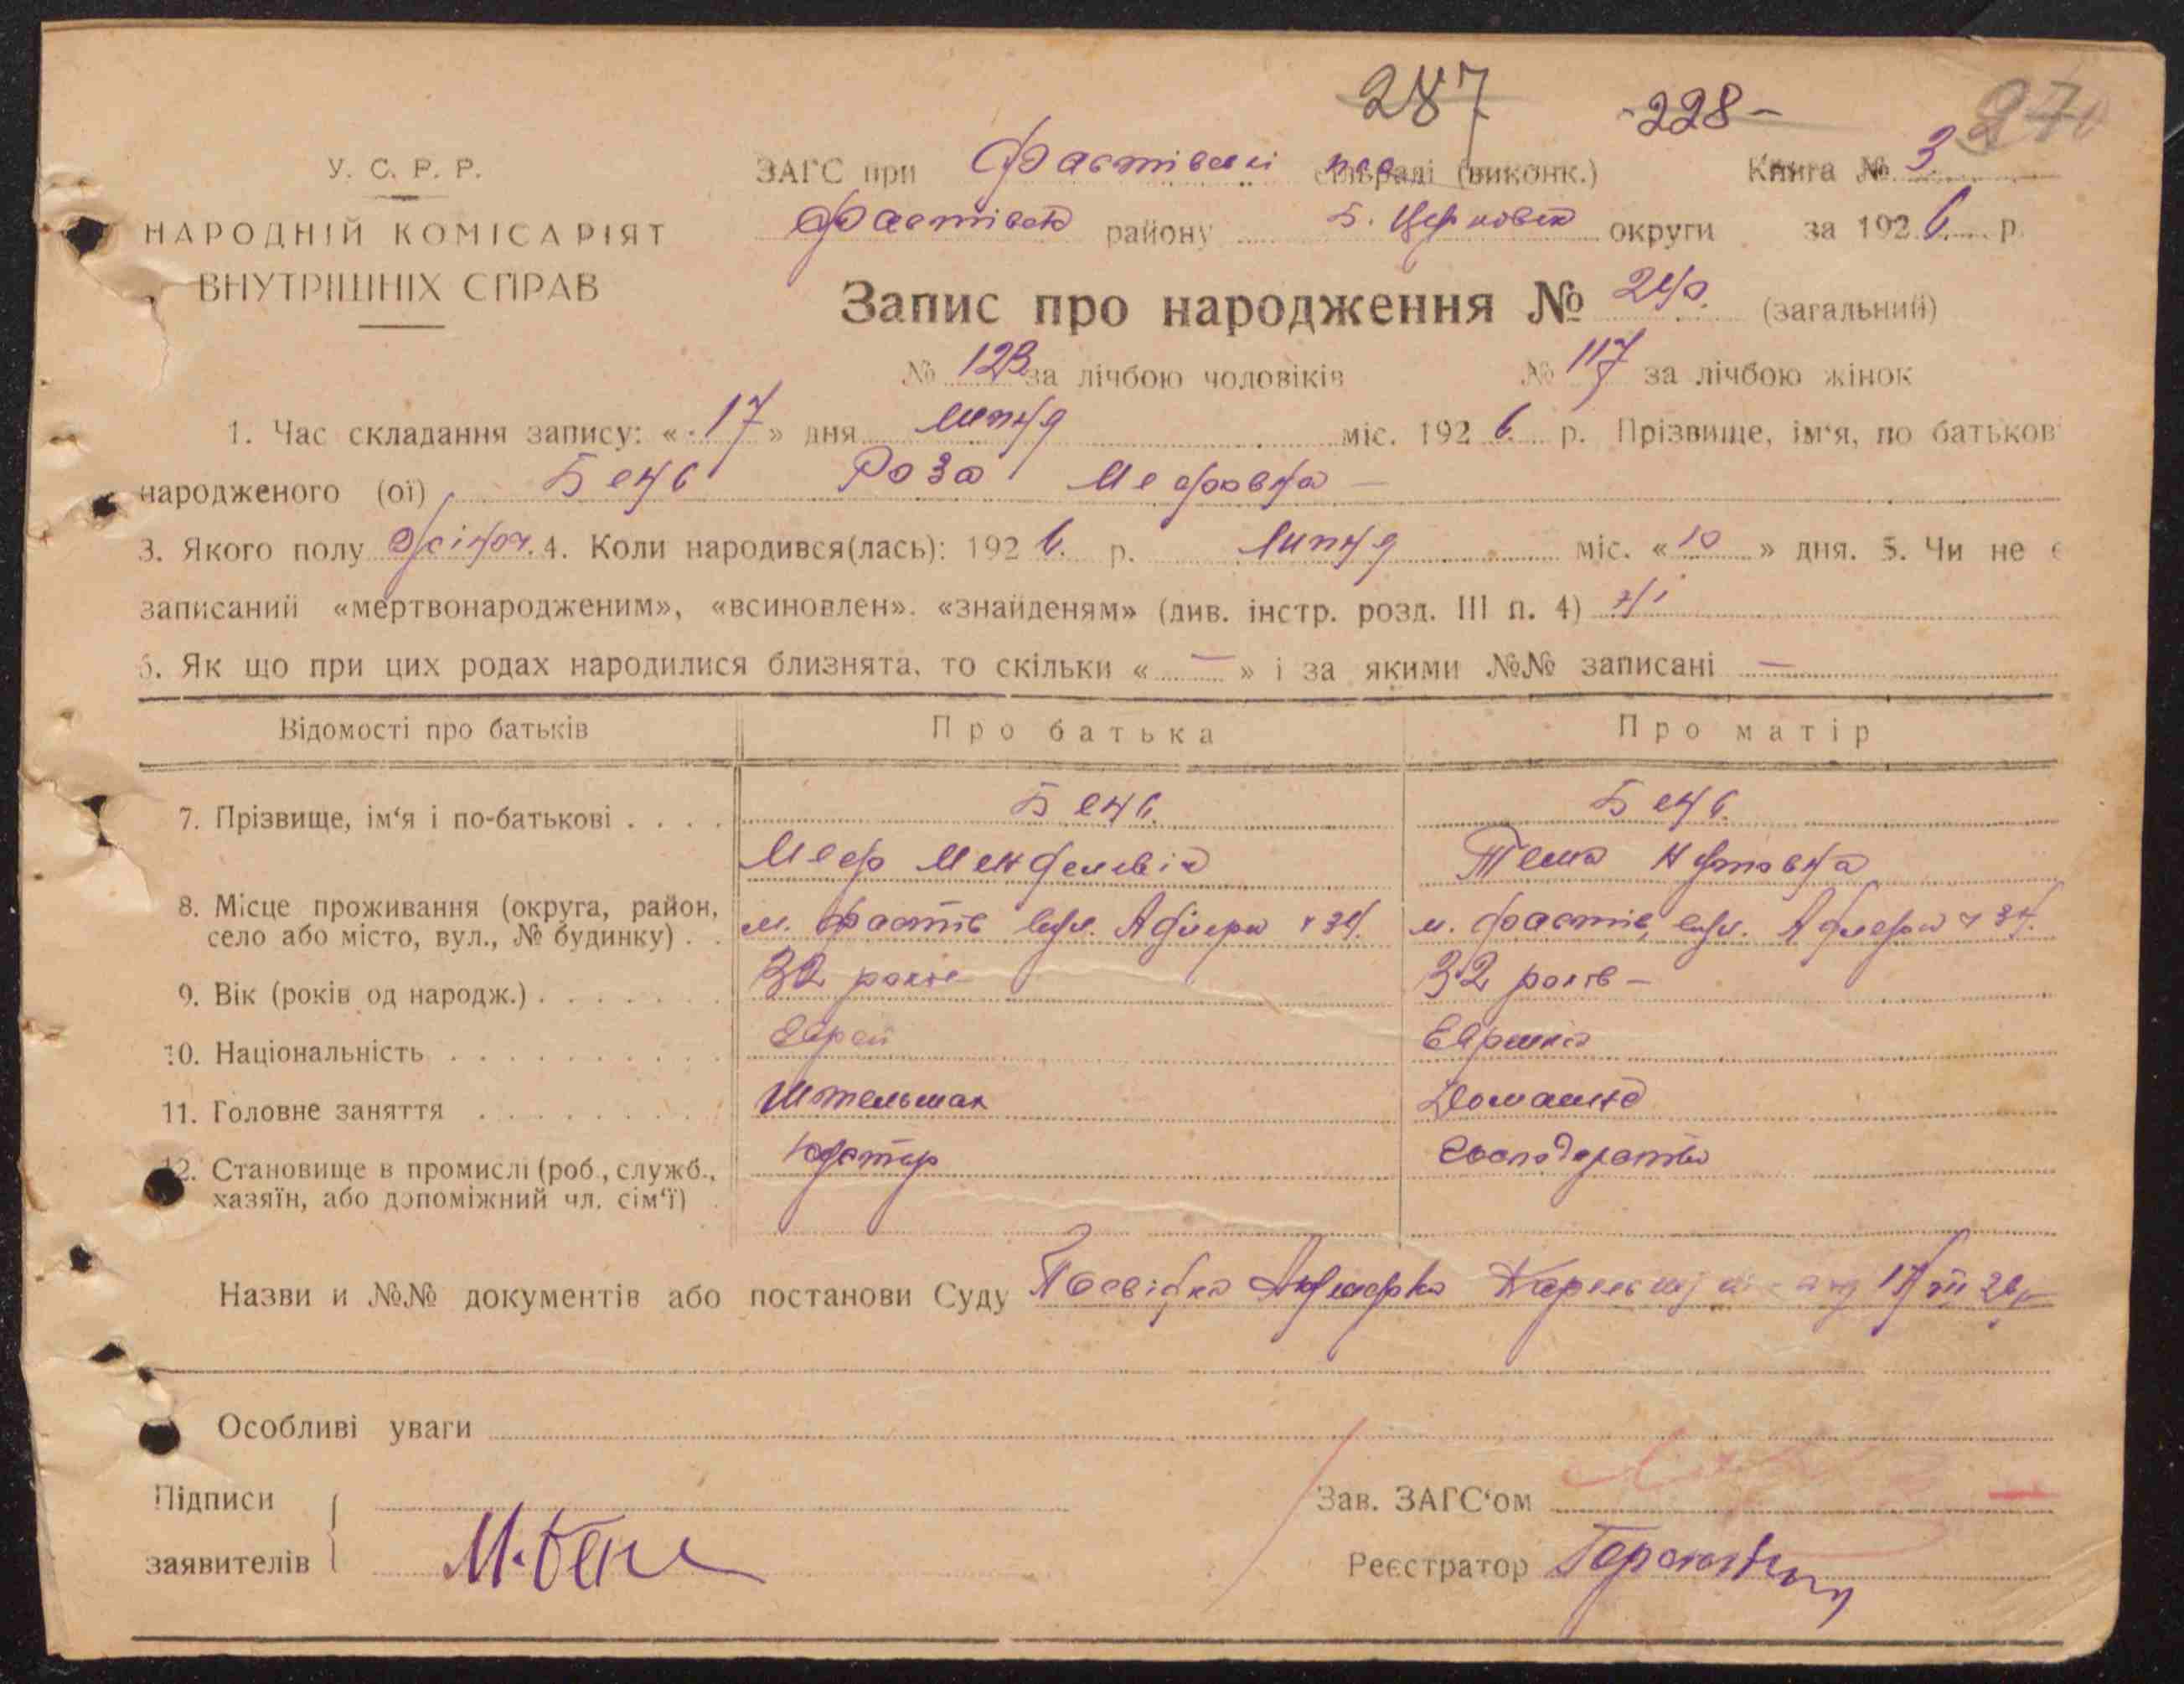 287 -228- 270
У. С. Р. Р.
НАРОДНІЙ КОМІСАРІЯТ
ВНУТРІШНІХ СПРАВ
ЗАГС при Фастівськ сільраді (виконк.) Книга № 3
Фастівськ району Б. Церковськ округи за 1926 р.
Запис про народження № 240. (загальний)
№ 123 за лічбою чоловіків № 117 за лічбою жінок
1. Час складання запису: « 17 » дня липня міс. 1926. р. Прізвище, ім'я, по батьков
народженого (ої) Бенв Роза Меєровна
3. Якого полу жіноч. 4. Коли народився(лась): 1926. р. липня міс. « 10 » дня. 5. Чи не є
записаний «мертвонародженим», «всиновлен». «знайденям» (див. інстр. розд. III п. 4) ні
6. Як що при цих родах народилися близнята, то скільки « — » і за якими №№ записані —
Відомості про батьків Про батька Про матір
7. Прізвище, ім'я і по-батькові . . . . Бенв. Бенв.
Меєр Менделевіч
8. Місце проживання (округа, район,
село або місто, вул., № будинку) . . м. Фастів вул. м. Фастів, вул.
9. Вік (років од народж.) . . . . . . . 32 років 32 років –
10. Національність . . . . . . . . . . Еврей Еврейка
11. Головне заняття . . . . . . . . Штельмах Домашнє
12. Становище в промислі (роб., служб., Кустар господарство
хазяїн, або допоміжний чл. сім'ї) .
Назви и №№ документів або постанови Суду Посвідка Акушерки 17/VII 26 р.
Особливі уваги
Підписи
заявителів М. Бенв
Зав. ЗАГС'ом
Реєстратор